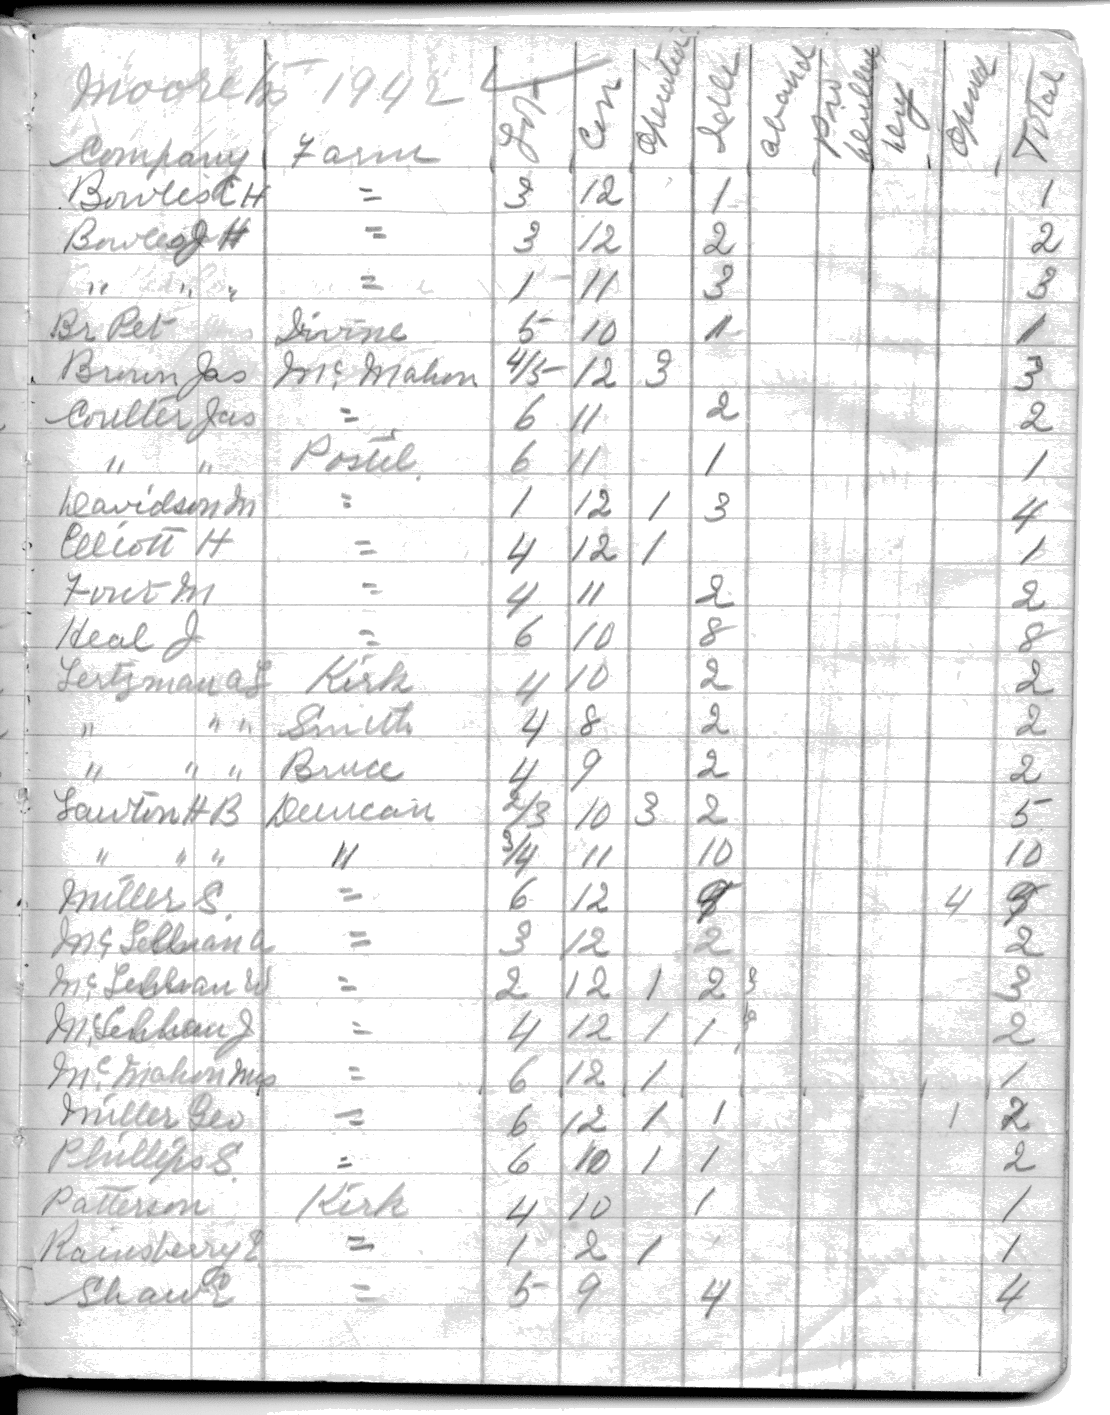 Moore Tp 1942
Company Farm Lot Con Operating Idle aband Pro Drilled Dry Opened Total
Bowles C H = 3 12 1 1
Bowles J H = 3 12 2 2
" " " = 1 11 3 3
Br Pet Divine 5 10 1 1
Brown Jas Mc Mahon 4/5 12 3 3
Coulter Jas = 6 11 2 2
" " Postil 6 11 1 1
Davidson M = 1 12 1 3 4
Elliott H = 4 12 1 1
Font M = 4 11 2 2
Heal J = 6 10 8 8
Lertzman A L Kirk 4 10 2 2
" " " Smith 4 8 2 2
" " " Bruce 4 9 2 2
Lawton H B Duncan 2/3 10 3 2 5
" " " " 3/4 11 10 10
Miller S. = 6 12 4
Mc Lellnan A = 3 12 2 2
Mc Lennan W = 2 12 1 2 3
Mc Lennan J = 4 12 1 1 2
Mc Mahon Mrs = 6 12 1 1
Miller Geo = 6 12 1 1 1 2
Phillips S. = 6 10 1 1 2
Patterson Kirk 4 10 1 1
Rainsberry E = 1 2 1 1
Shaw E = 5 9 4 4